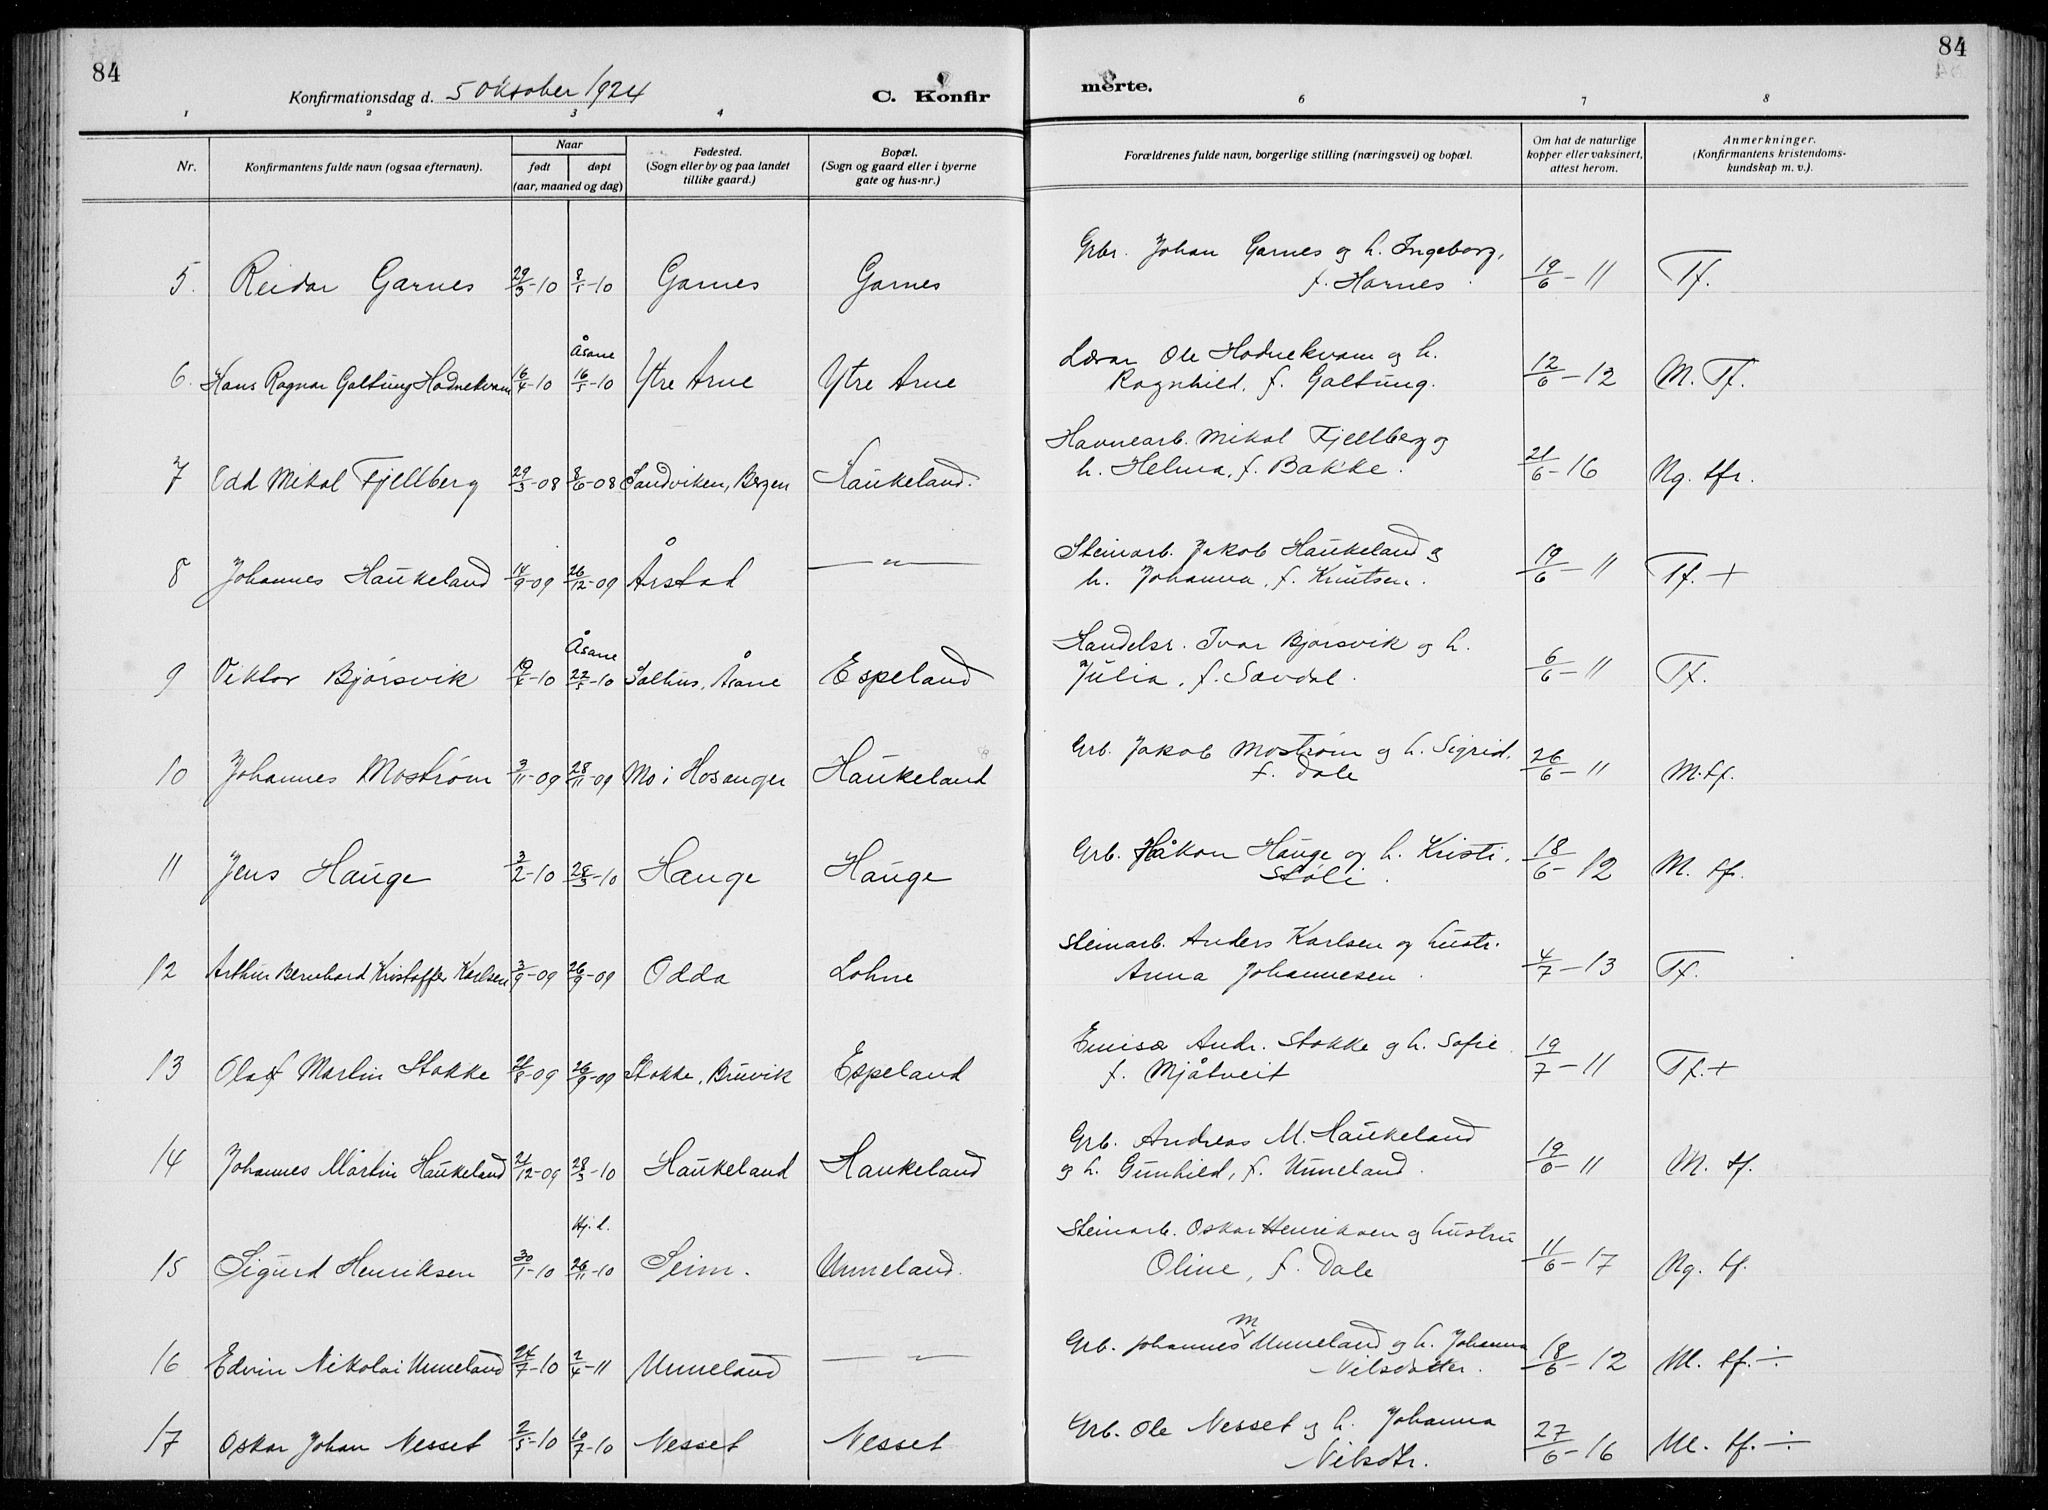 84
84
Konfirmationsdag d. 5 Oktober 1924
C. Konfir
merte.
1 2 3 4 6 7 8
Nr. Konfirmantens fulde navn (ogsaa efternavn). Naar født døpt (aar, maaned og dag) Fødested. (Sogn eller by og paa landet tillike gaard.) Bopæl. (Sogn og gaard eller i byerne gate og hus-nr.) Forældrenes fulde navn, borgerlige stilling (næringsvei) og bopæl. Om hat de naturlige kopper eller vaksinert, attest herom. Anmerkninger. (Konfirmantens kristendoms-kundskap m. v.).
Grbr. Johan Garnes og h. Ingeborg,
5. Reidar Garnes 29/3-10 8/5-10 Garnes Garnes f. Harnes. 19/6-11 Tf.
Åsane Lærar Ole Hodnekvam og h.
6. Hans Ragnar Galtung Hodnekvam 16/4-10 16/5-10 Ytre Arne Ytre Arne Ragnhild, f. Galtung. 12/6-12 M. Tf.
Havnearb. Mikal Fjellberg og
7 Odd Mikal Fjellberg 29/3-08 8/6-08 Sandviken, Bergen Haukeland. h. Helma, f. Bakke. 21/6-16 Ng. tfr.
Steinarb. Jakob Haukeland og
8 Johannes Haukeland 14/9-09 26/12-09 Årstad —〃— h. Johanna, f. Knutsen. 19/6-11 Tf. +
Åsane Handelsr. Ivar Bjørsvik og h.
9 Viktor Bjørsvik -10 22/5-10 Salhus, Åsane Espeland Julia, f. Sævdal. 6/6-11 Tf.
Grb. Jakob Mostrøm og h. Sigrid,
10 Johannes Mostrøm 3/11-09 28/11-09 Mo i Hosanger Haukeland f. Dale 26/6-11 M. tf.
Grb. Håkon Hauge og h. Kristi,
11 Jens Hauge 3/2-10 28/3-10 Hauge Hauge Støli. 18/6-12 M. tf.
Steinarb. Anders Karlsen og hustr.
12 Arthur Bernhard Kristoffer Karlsen 3/9-09 26/9-09 Odda Lohne Anna Johannesen. 4/7-13 Tf.
Emisæ Andr. Stokke og h. Sofie
13 Olaf Martin Stokke 21/8-09 26/9-09 Stokke, Bruvik Espeland f. Mjåtveit 19/7-11 Tf. +
Grb. Andreas M. Haukeland
14 Johannes Martin Haukeland 21/12-09 28/3-10 Haukeland Haukeland og h. Gunhild, f. Unneland. 19/6-11 M. tf.
Hj. d. Steinarb. Oskar Henriksen og hustru
15 Sigurd Henriksen 30/1-10 26/11-10 Seim. Unneland. Oline, f. Dale 11/6-17 Ng. tf.
Grb. Johannes M Unneland og h. Johanna
16 Edvin Nikolai Unneland 24/7-10 2/4-11 Unneland —〃— Nilsdatter. 18/6-12 M. tf. ÷
Grb. Ole Nesset og h. Johanna
17 Oskar Johan Nesset 2/5-10 10/7-10 Nesset Nesset Nilsdtr. 27/6-16 M. tf. ÷